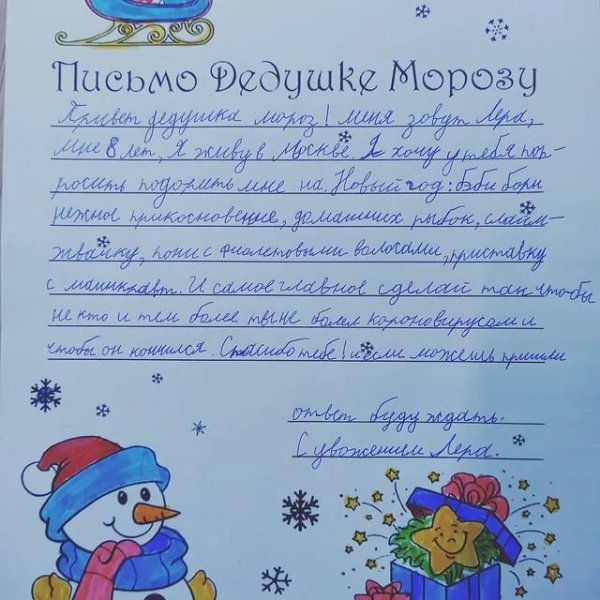 Письмо Дедушке Морозу
Привет дедушка мороз! меня зовут Лера,
мне 8 лет, Я живу в Москве. Я хочу у тебя поп-
росить подорить мне на Новый год: бэби борн
нежное прикосновение, домашних рыбок, слайм-
жвачку, пони с фиолетовыми волосами, приставку
с маинкравт. И самое главное сделай так что-бы
не кто и тем более ты не болел короновирусом и
чтобы он кончился. Спасибо тебе! и если можешь пришли
ответ буду ждать.
С уважением Лера.